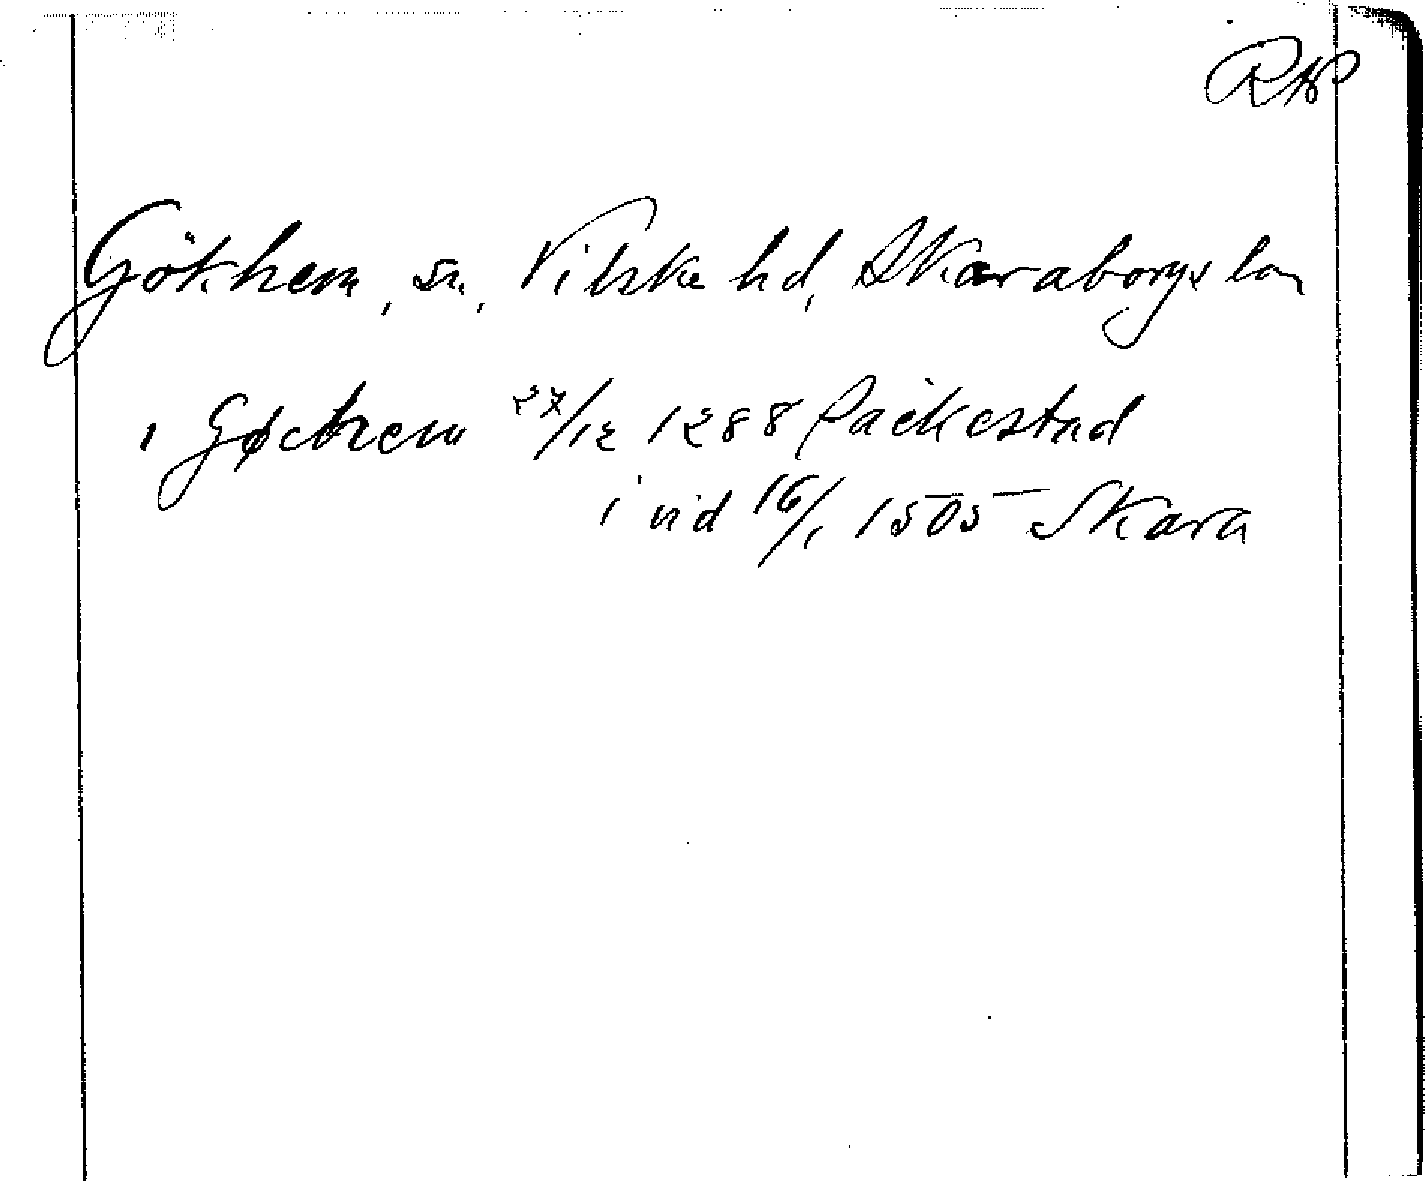 RAP
Gökhem, sn, Vilske hd, Skaraborgs län
i Gøchem 27/12 1288 Packestad
i vid 16/1 1505 Skara